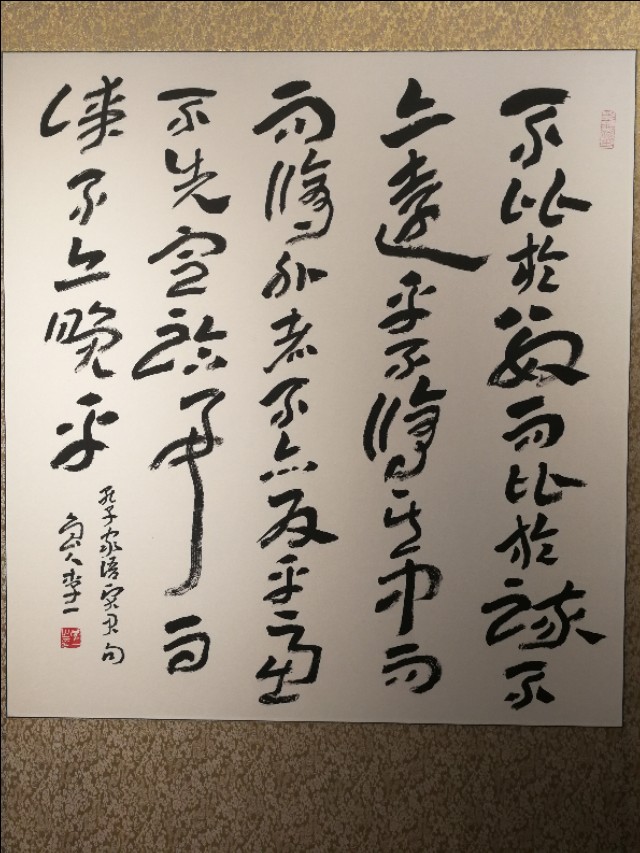 不比於數而比於疎不
亦遠乎不修其中而
而修外者不亦反乎慮
不先定臨事而
謀不亦晚乎
孔子家語賢君句
魯人李一